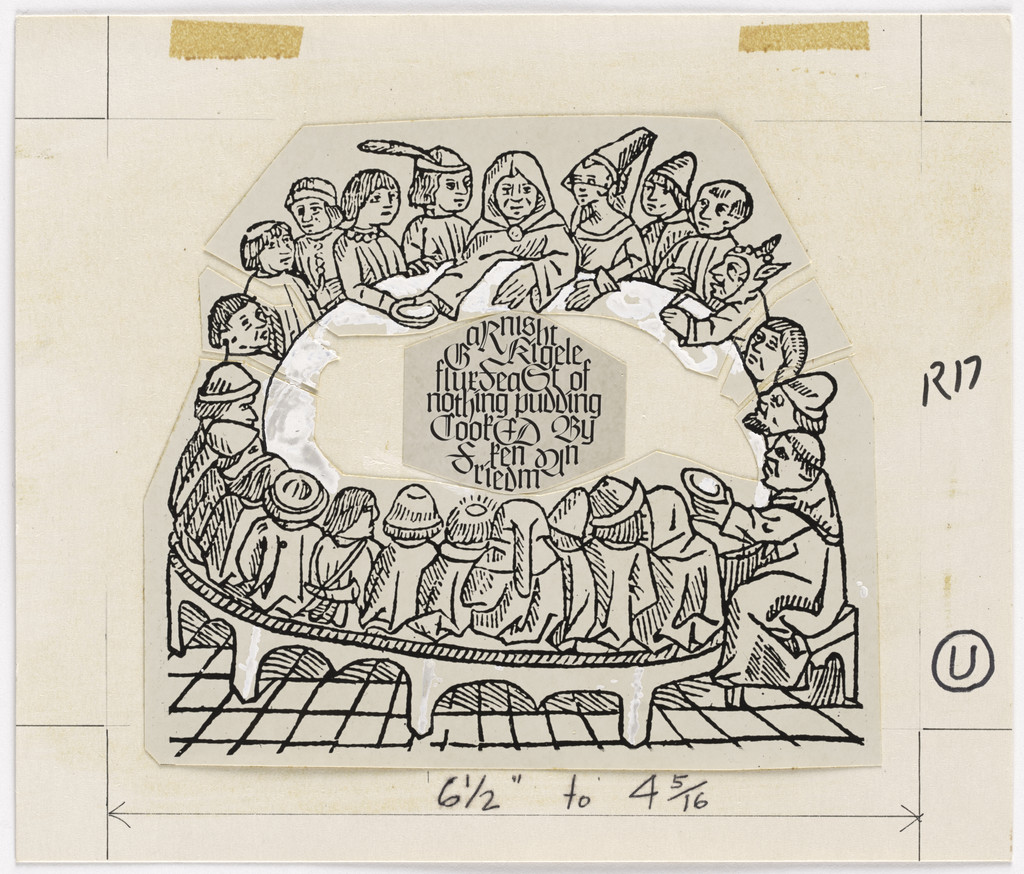 GaRnisht
KIgele
fluxFeaSt of
nothing pudding
CookED By
ken
FriedmAn
R17
U
6 1/2" to 4 5/16